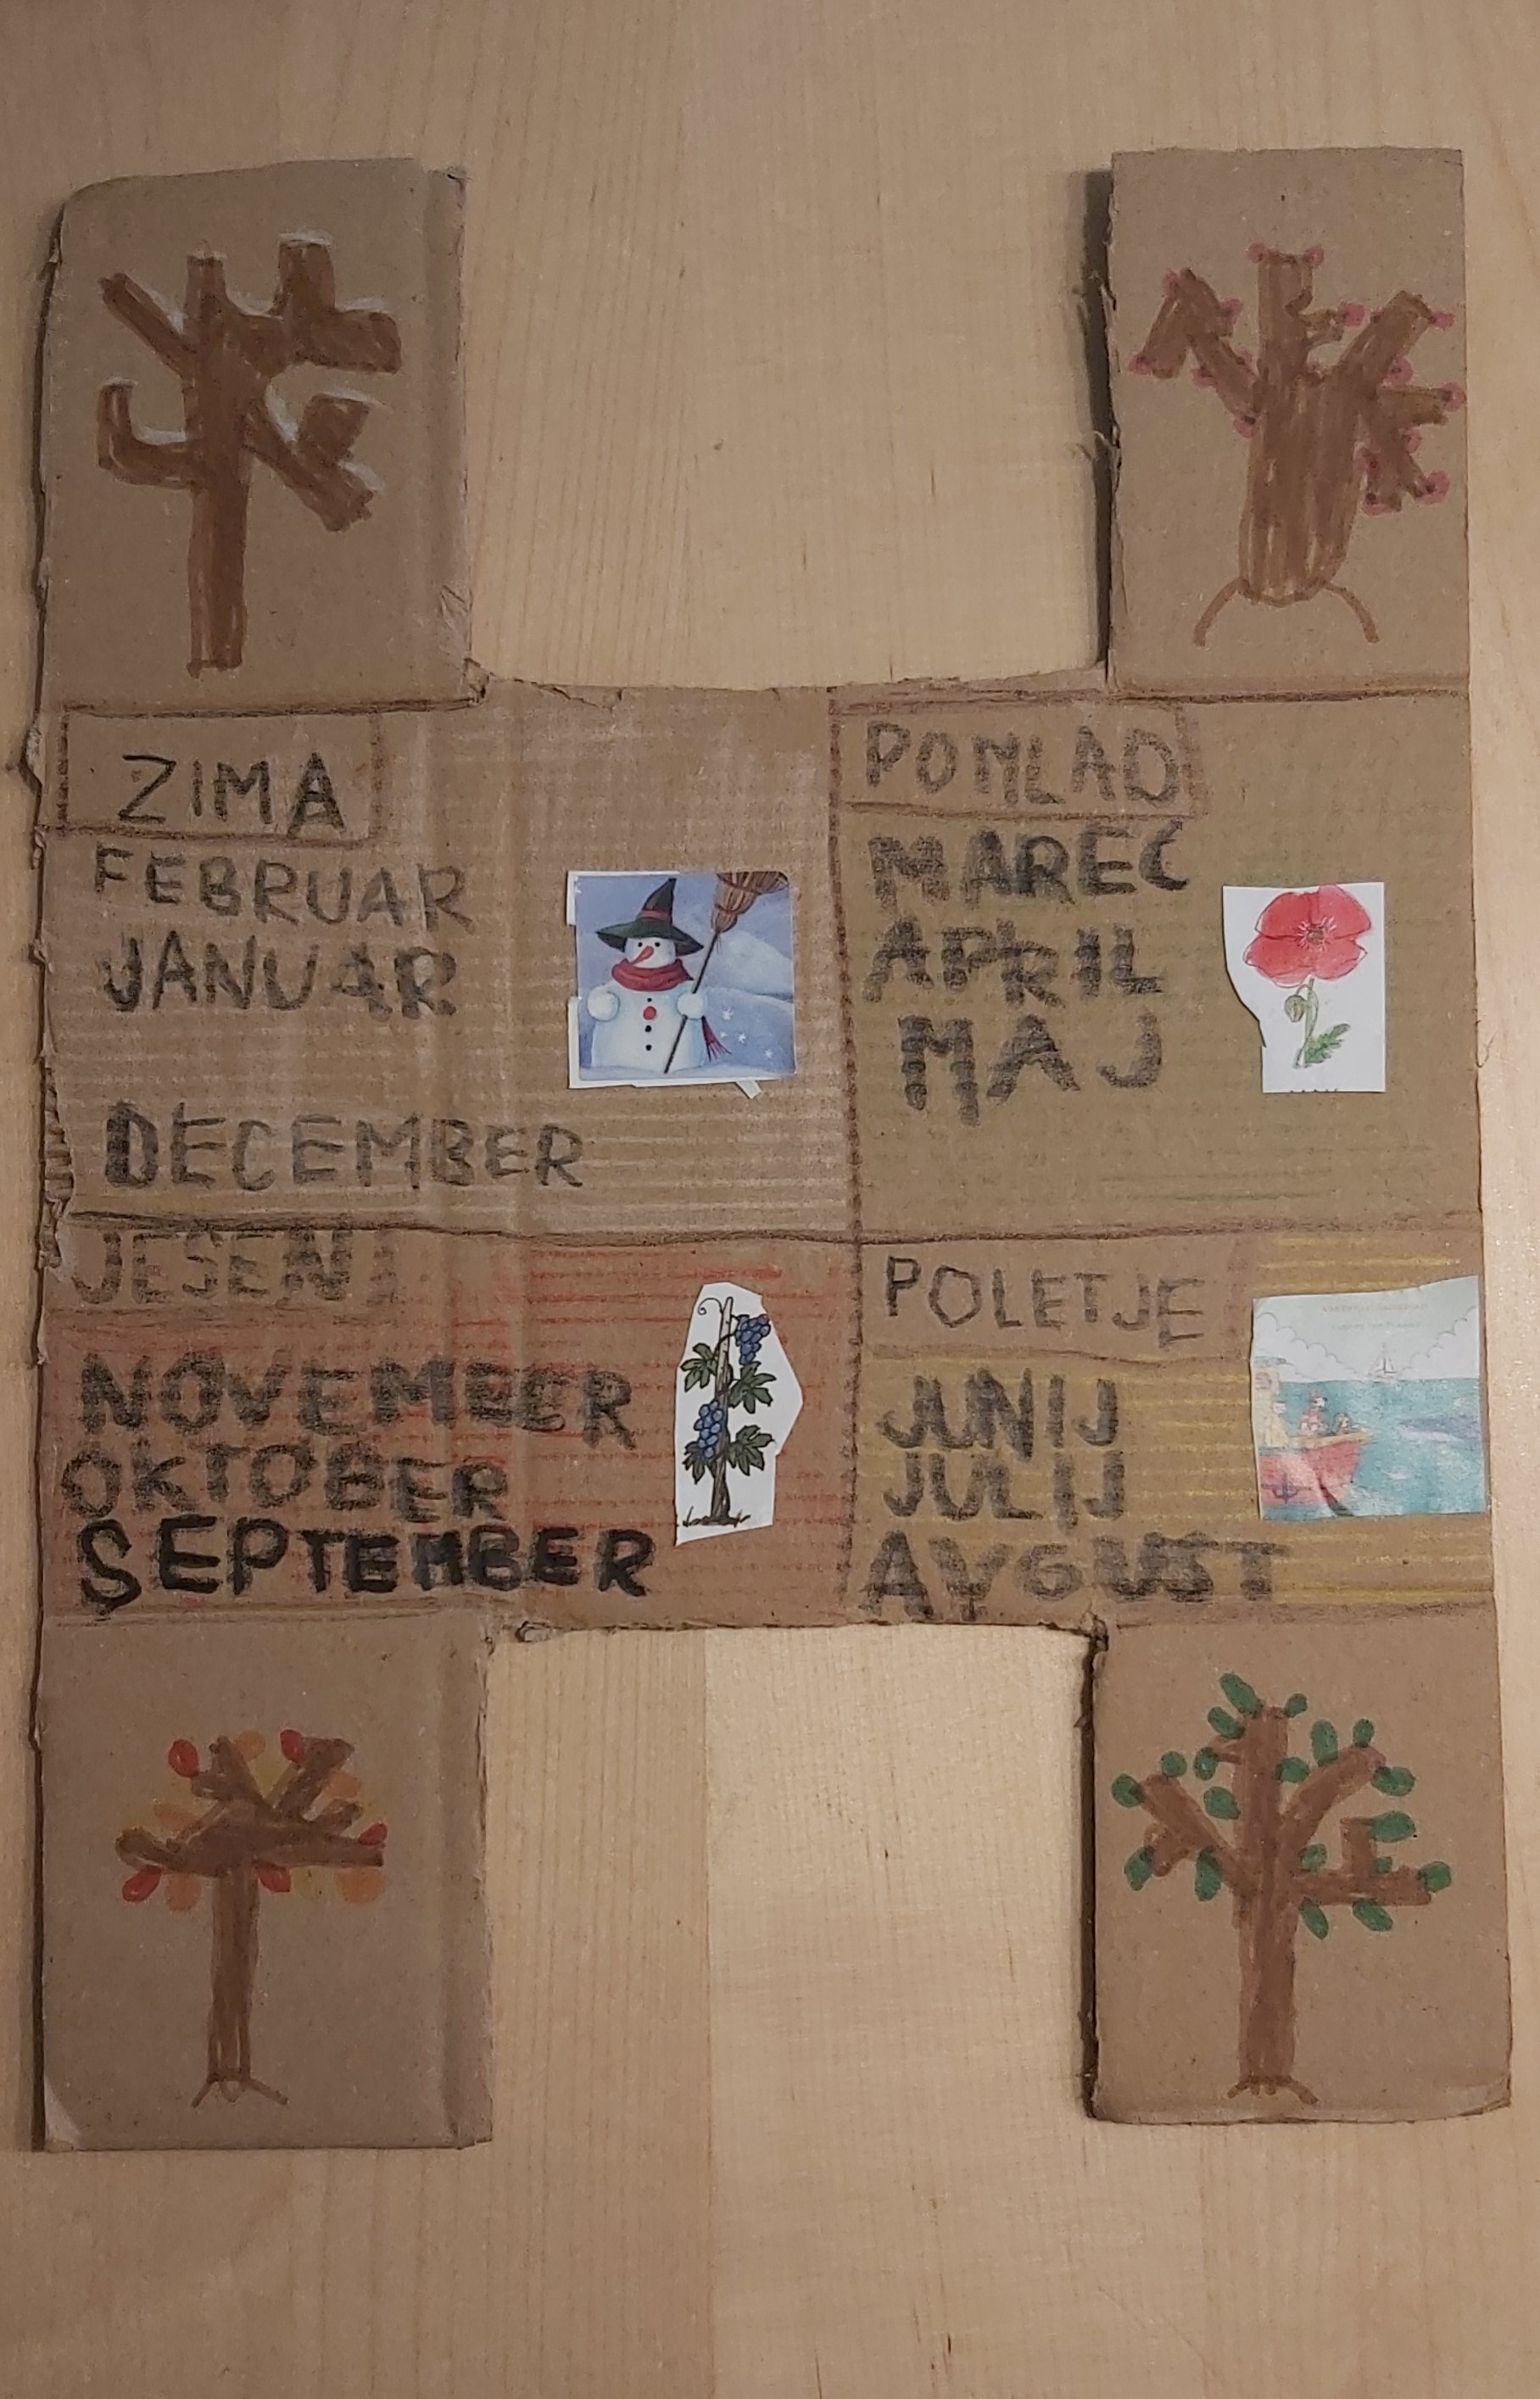 ZIMA
FEBRUAR
JANUAR
DECEMBER
POMLAD
MAREC
APRIL
MAJ
JESEN
NOVEMBER
OKTOBER
SEPTEMBER
POLETJE
JUNIJ
JULIJ
AVGUST